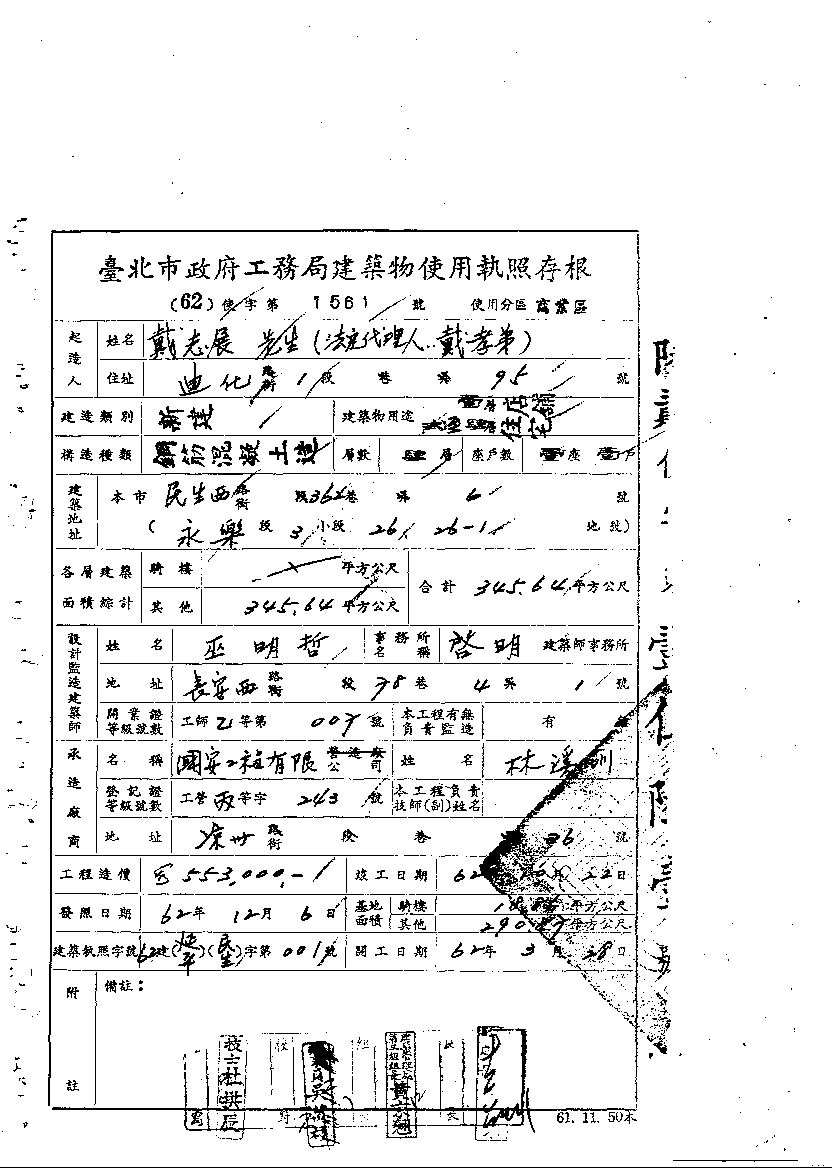 臺北市政府工務局建築物使用執照存根
(62) 使字第 1561 號 使用分區 商業區
起造人 姓名 戴志展 先生(法定代理人:戴孝弟)
住址 迪化街 1段 巷 弄 95 號
建造類別 新建 建築物用途 店舖住宅
構造種類 鋼筋混凝土造 層數 肆層 座戶數 壹座 壹戶
建築地址 本市 民生西路 段362巷 弄 6 號
(永樂 段 3 小段 26 26-1 地號)
各層建築面積綜計 騎樓 平方公尺 合計 345.64 平方公尺
其他 345.64 平方公尺
設計監造建築師 姓名 巫明哲 事務所名稱 啓明 建築師事務所
地址 長安西路 段 78 巷 4 弄 1 號
開業證等級號數 工師 乙等第 007 號 本工程有無負責監造 有
承造廠商 名稱 國安工程有限公司 姓名 林溪圳
登記證等級號數 工管 丙等字 243 號 本工程負責技師(副)姓名
地址 涼州街 段 巷 36 號
工程造價 553,000.- 竣工日期 62 月 22日
發照日期 62年 12月 6日 基地面積 騎樓 平方公尺
其他 平方公尺
建築執照字號 62建(延平)(民生)字第 001 號 開工日期 62年 3月 28日
附註 備註:
技士杜拱辰
61. 11. 50本